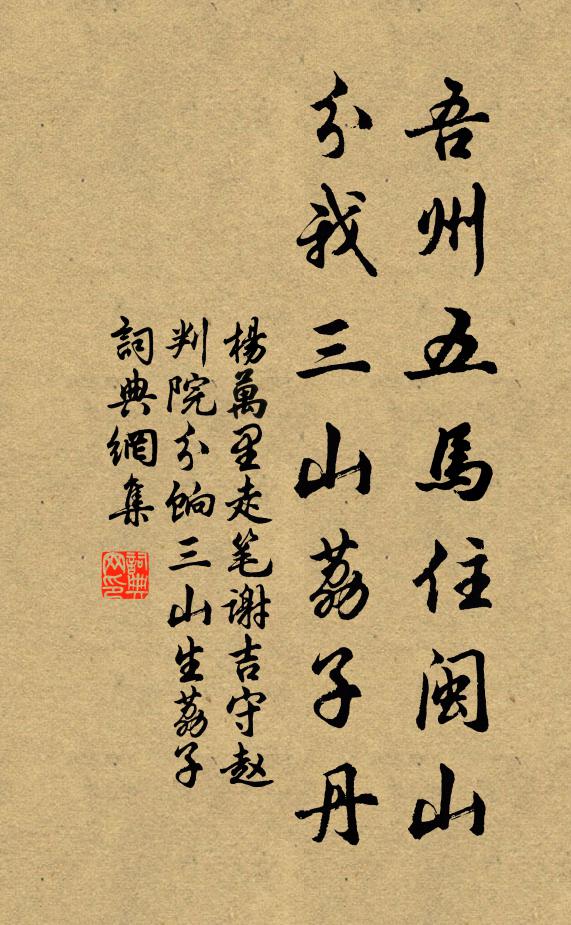 吾州五馬住閩山
分我三山荔子丹
楊萬里走笔謝吉守赵
判院分餉三山生荔子
詞典網集
詞典網印